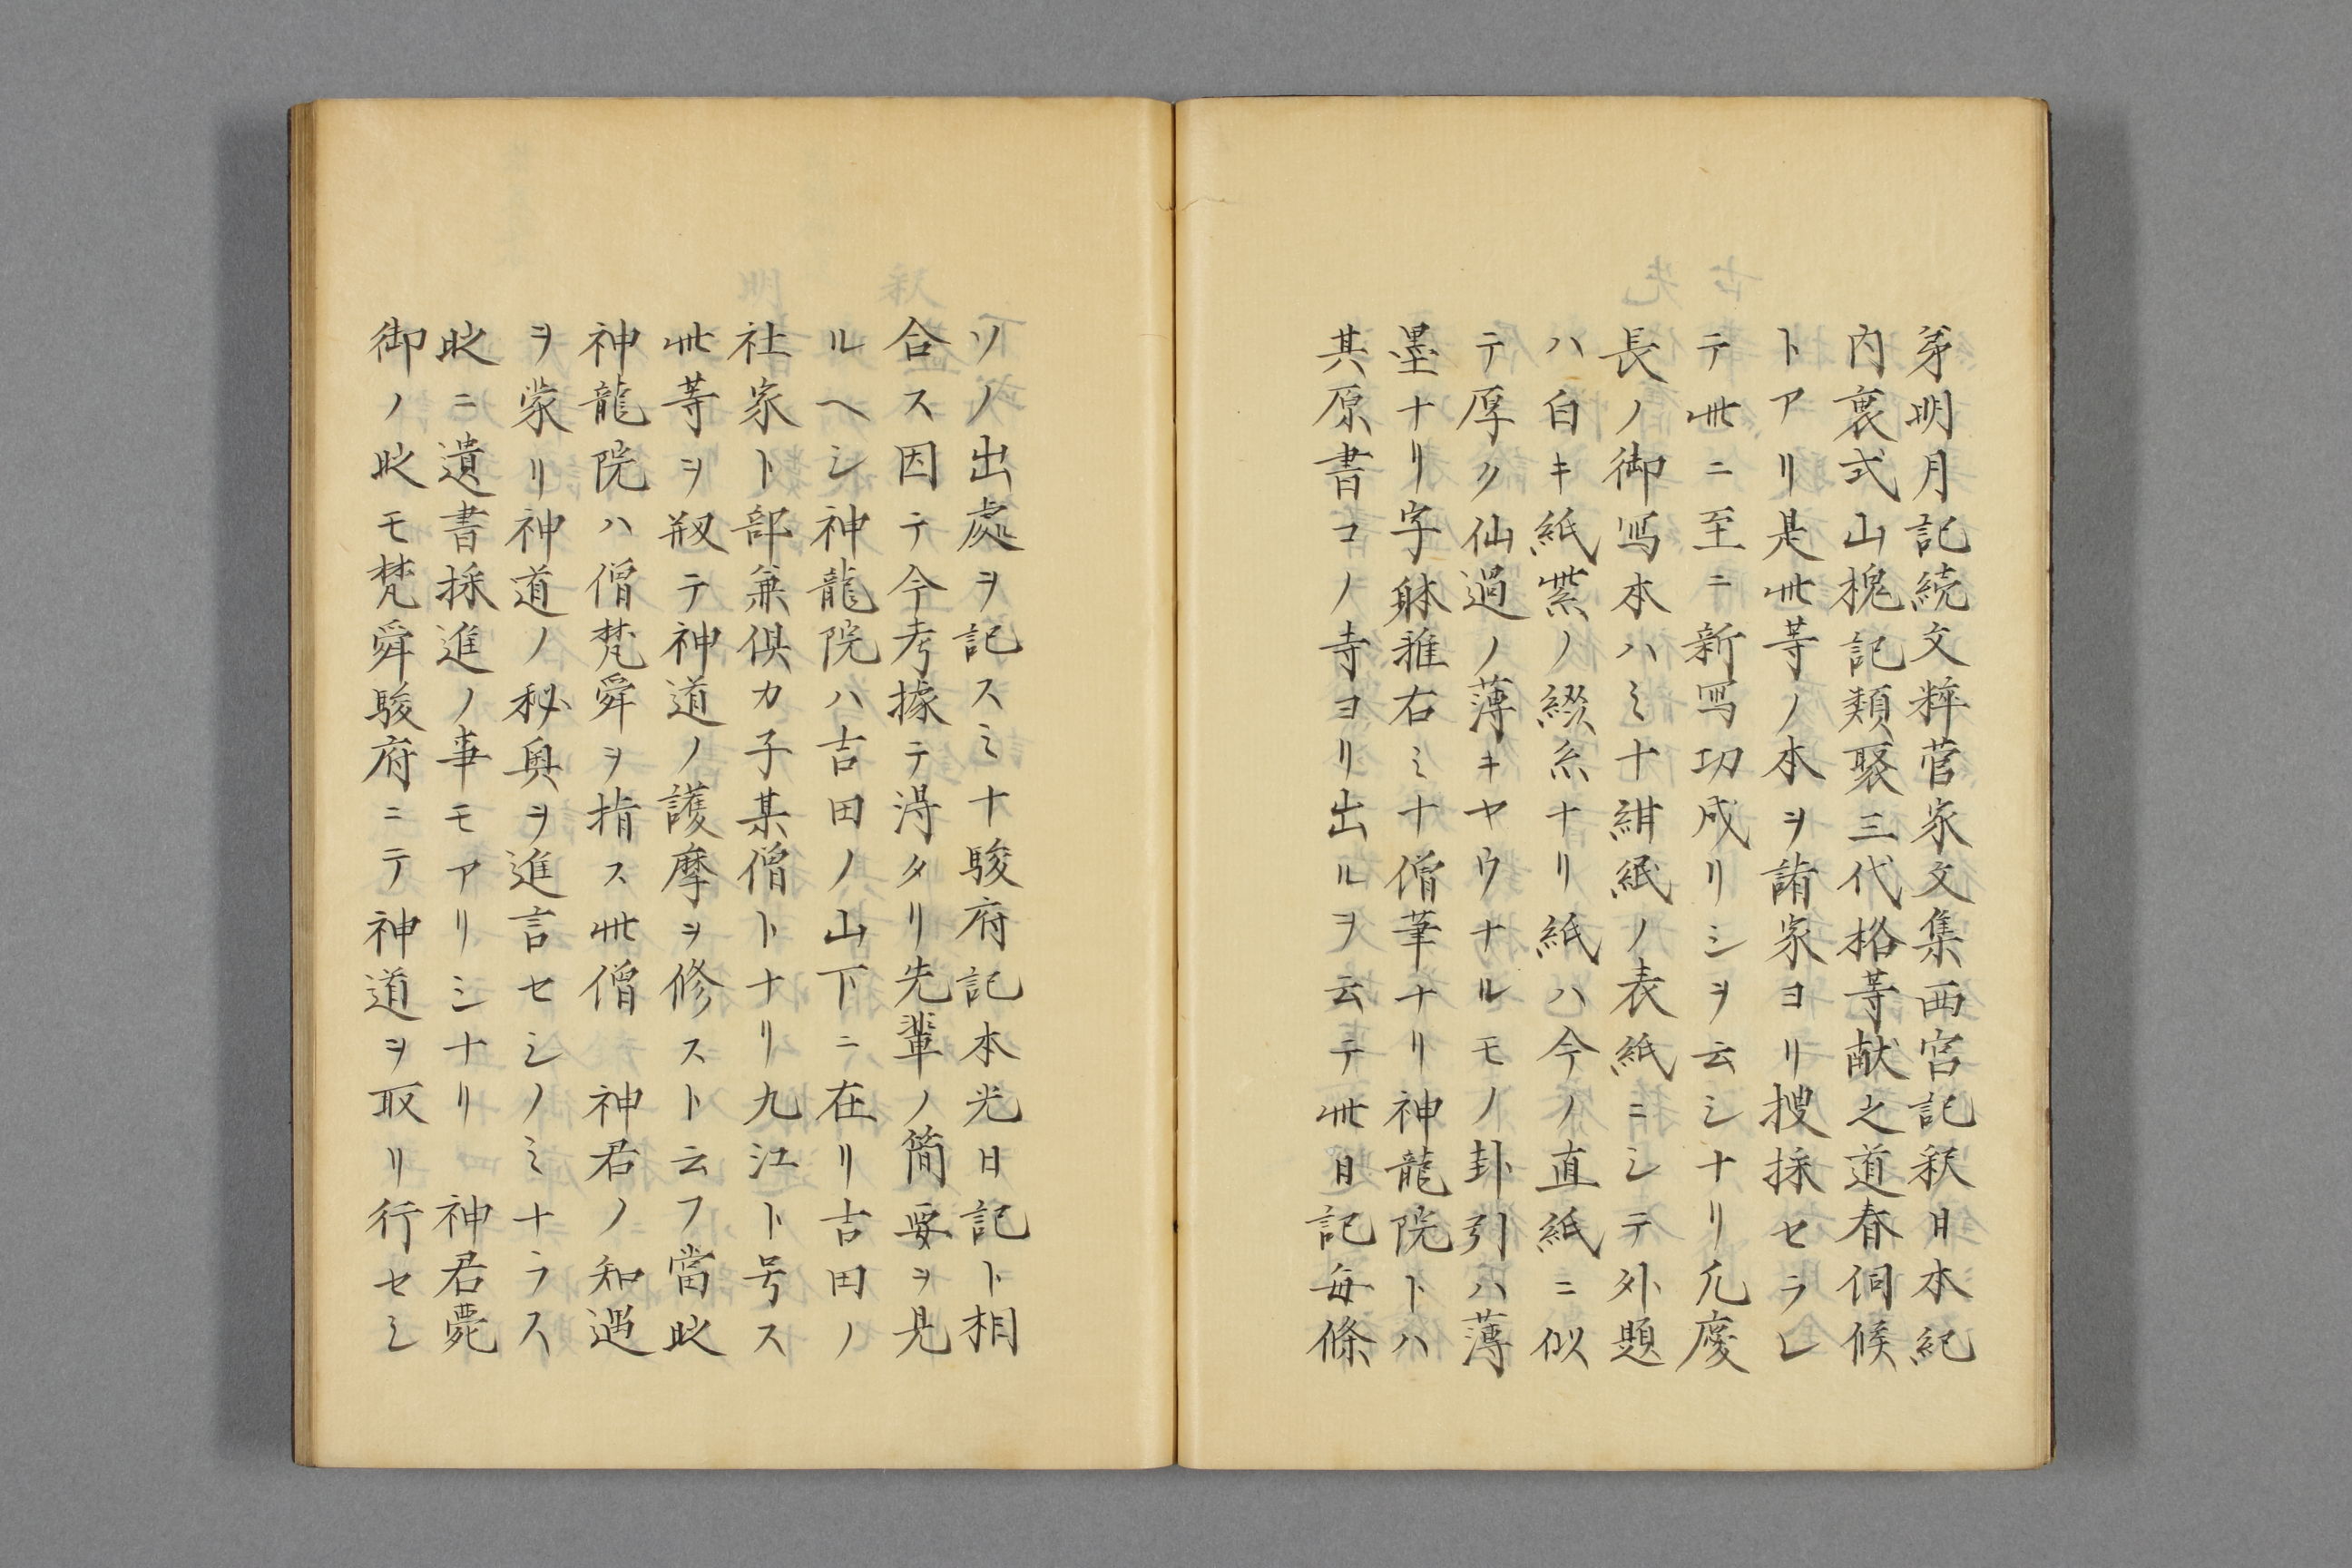 第明月記続文粹菅家文集西宮記釈日本紀
内裏式山槐記類聚三代格等献之道春伺候
トアリ是此等ノ本ヲ諸家ヨリ捜採セラレ
テ此ニ至ニ新写功成リシヲ云シナリ凢慶
長ノ御写本ハミナ紺紙ノ表紙ニシテ外題
ハ白キ紙紫ノ綴糸ナリ紙ハ今ノ直紙ニ似
テ厚ク仙過ノ薄キヤウナルモノ卦引ハ薄
墨ナリ字躰雅右ミナ僧筆ナリ神龍院トハ
其原書コノ寺ヨリ出ルヲ云テ此日記毎條
ソノ出處ヲ記スミナ駿府記本光日記ト相
合ス因テ今考據テ淂タリ先輩ノ簡要ヲ見
ルヘシ神龍院ハ吉田ノ山下ニ在リ吉田ノ
社家ト部兼倶カ子某僧トナリ九江ト号ス
此等ヲ剏テ神道ノ護摩ヲ修スト云フ當时
神龍院ハ僧梵舜ヲ指ス此僧　神君ノ知遇
ヲ蒙リ神道ノ秘奥ヲ進言セシノミナラス
时ニ遺書採進ノ事モアリシナリ　神君薨
御ノ时モ梵舜駿府ニテ神道ヲ取リ行セシ